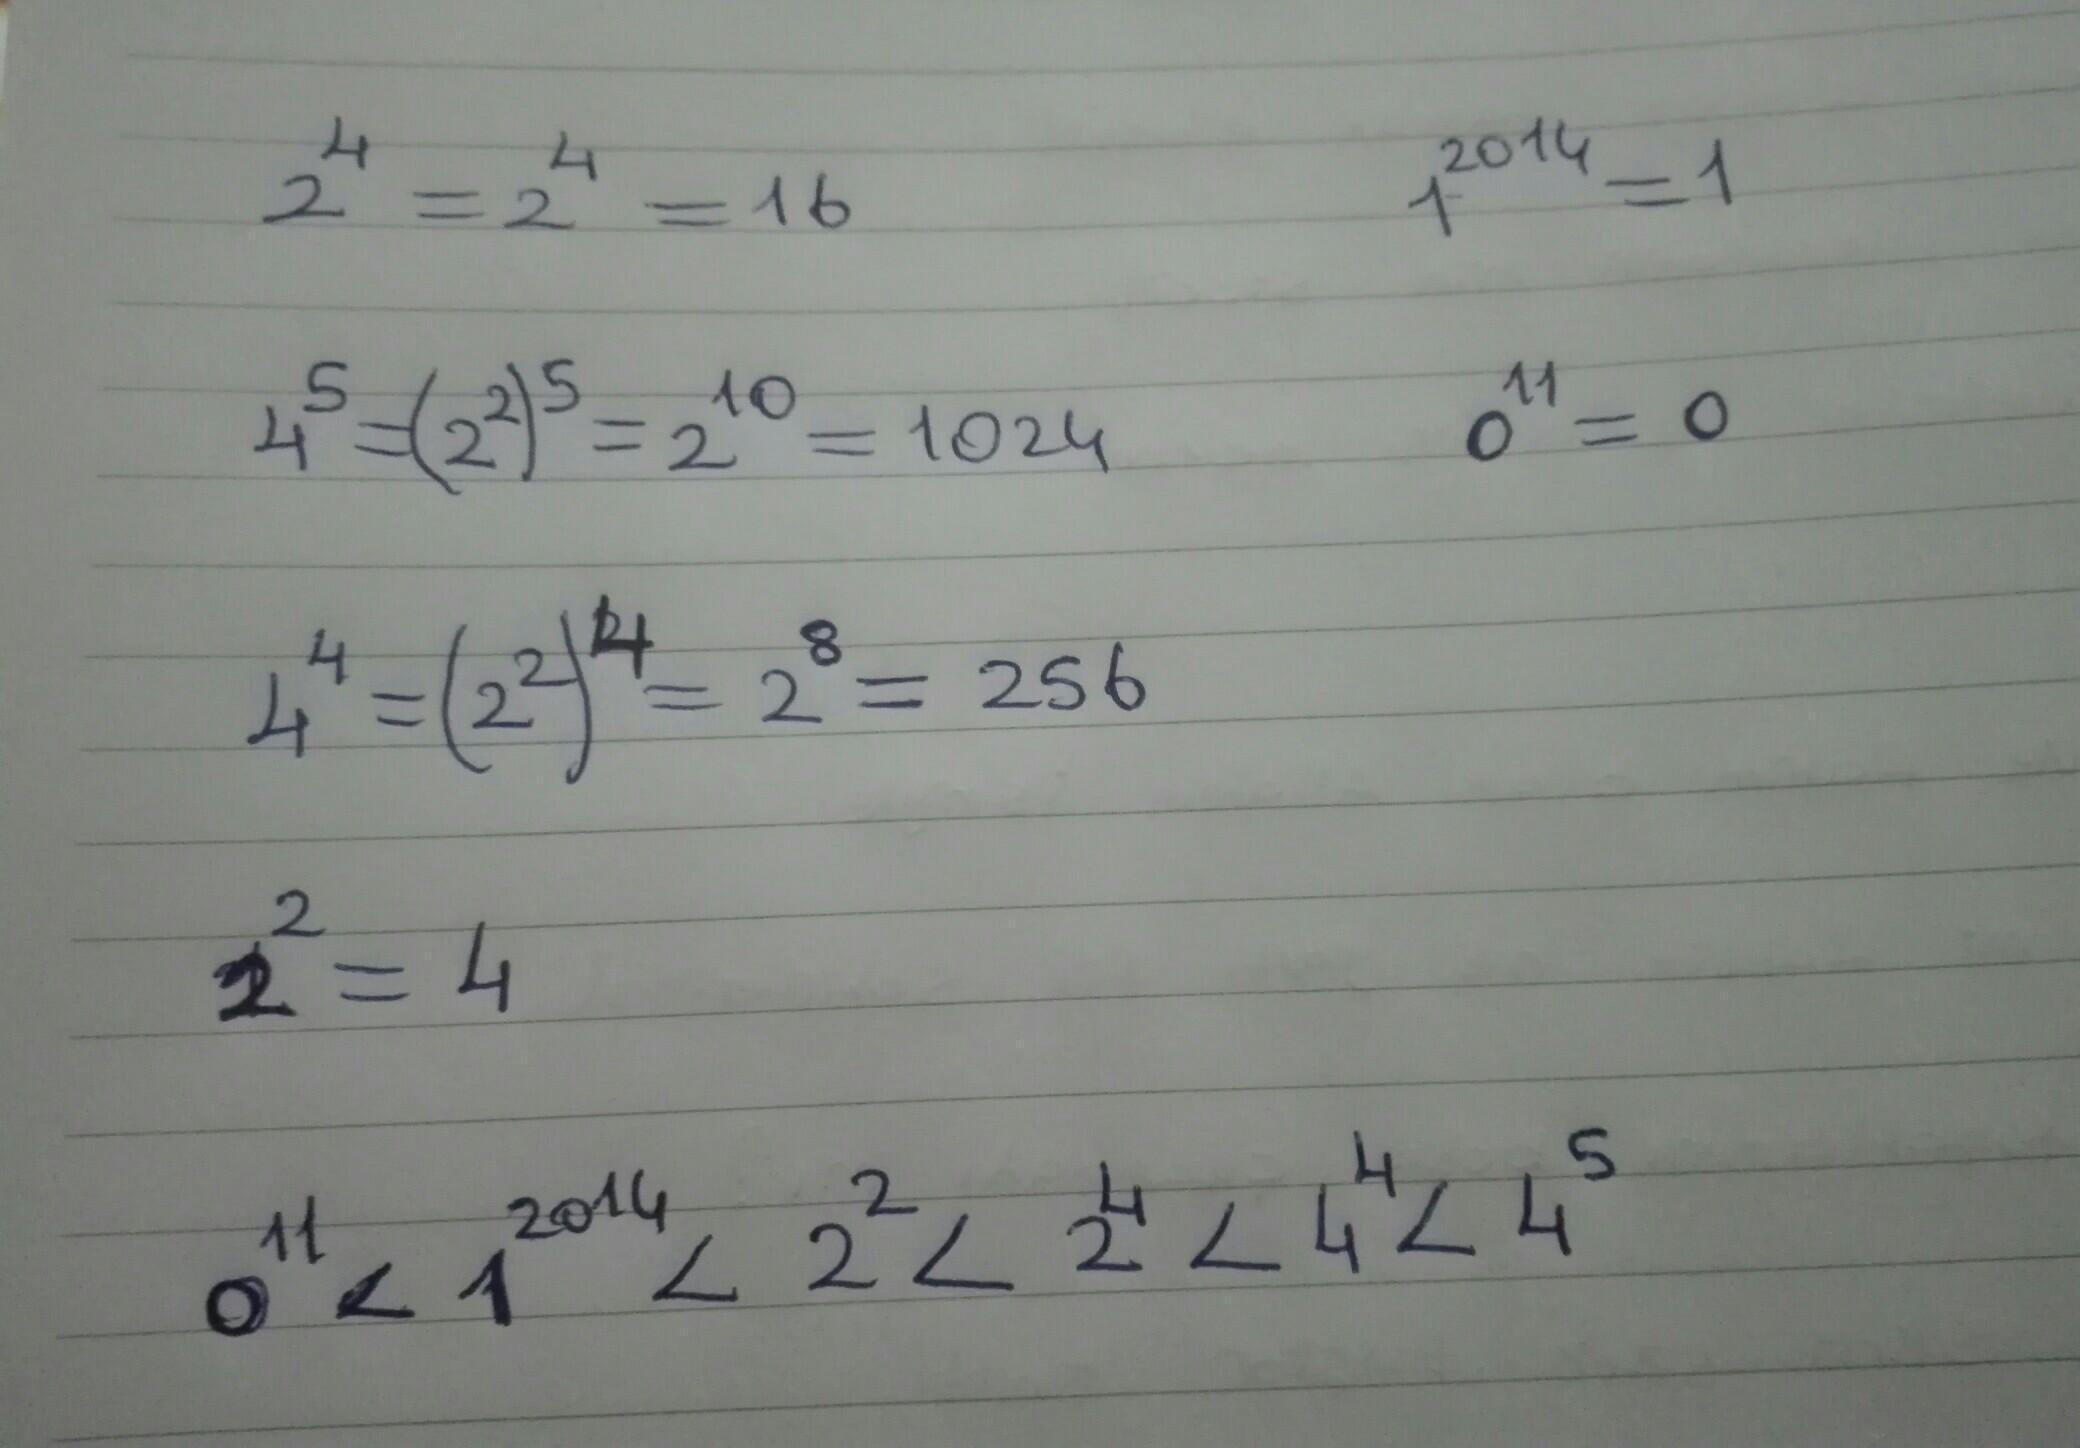 2⁴ = 2⁴ = 16
1²⁰¹⁴ = 1
4⁵ = (2²)⁵ = 2¹⁰ = 1024
0¹¹ = 0
4⁴ = (2²)⁴ = 2⁸ = 256
2² = 4
0¹¹ < 1²⁰¹⁴ < 2² < 2⁴ < 4⁴ < 4⁵